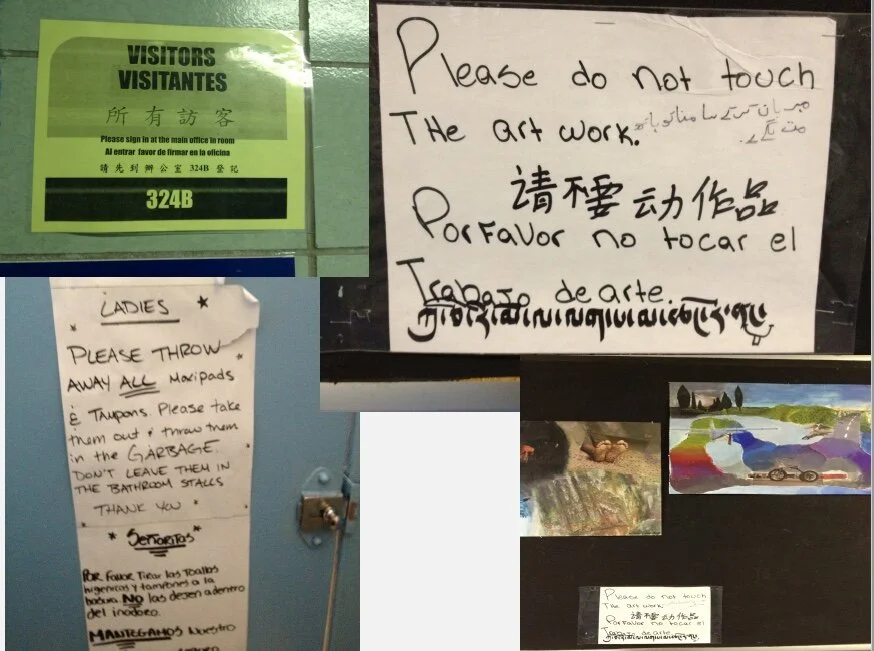 VISITORS
VISITANTES
所有訪客
Please sign in at the main office in room
Al entrar favor de firmar en la oficina
請先到辦公室 324B 登記
324B
Please do not touch
THe art work.
请不要动作品
Por Favor no tocar el
Trabajo de arte.
LADIES
PLEASE THROW
AWAY ALL Maxipads
& Tampons. Please take
them out & throw them
in the GARBAGE.
DON'T LEAVE THEM IN
THE BATHROOM STALLS
THANK YOU
Señoritas
Por Favor Tirar las Toallas
higenicas y tampones a la
basura. NO las dejen adentro
del inodoro.
MANTEGAMOS Nuestro
Please do not touch
The art work.
请不要动作品
Por Favor no tocar el
Trabajo de arte